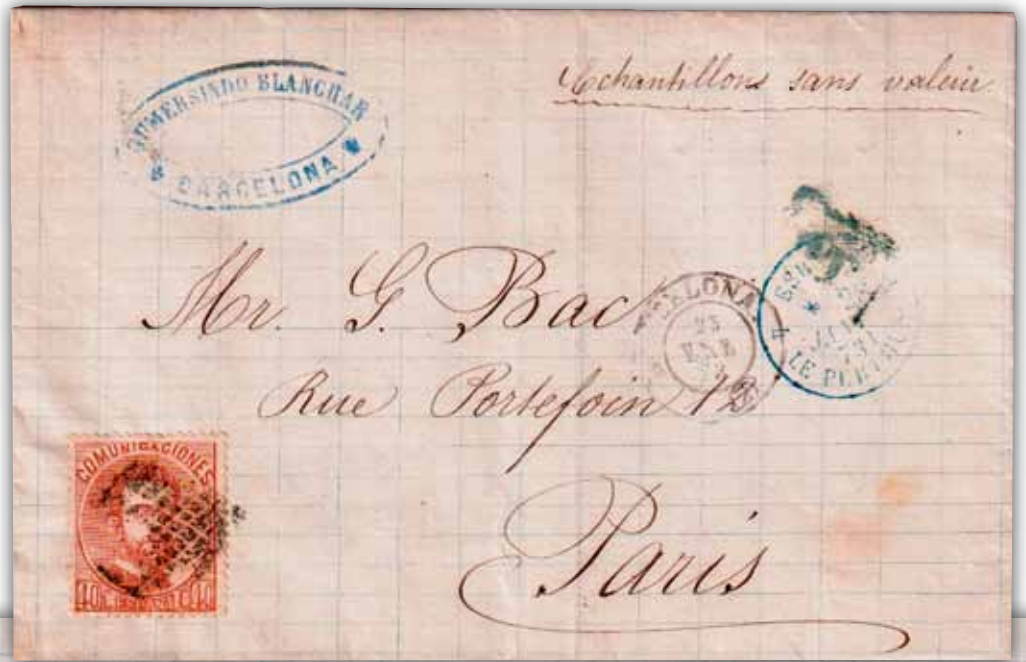 GUMERSINDO BLANCHAR
BARCELONA
Echantillons sans valeur
Mr. G. Bac
Rue Portefoin 12
Paris
BARCELONA
23
ENE
ESP
4
LE PERTHUS
COMUNICACIONES
40 C. ESPAÑA C. 40